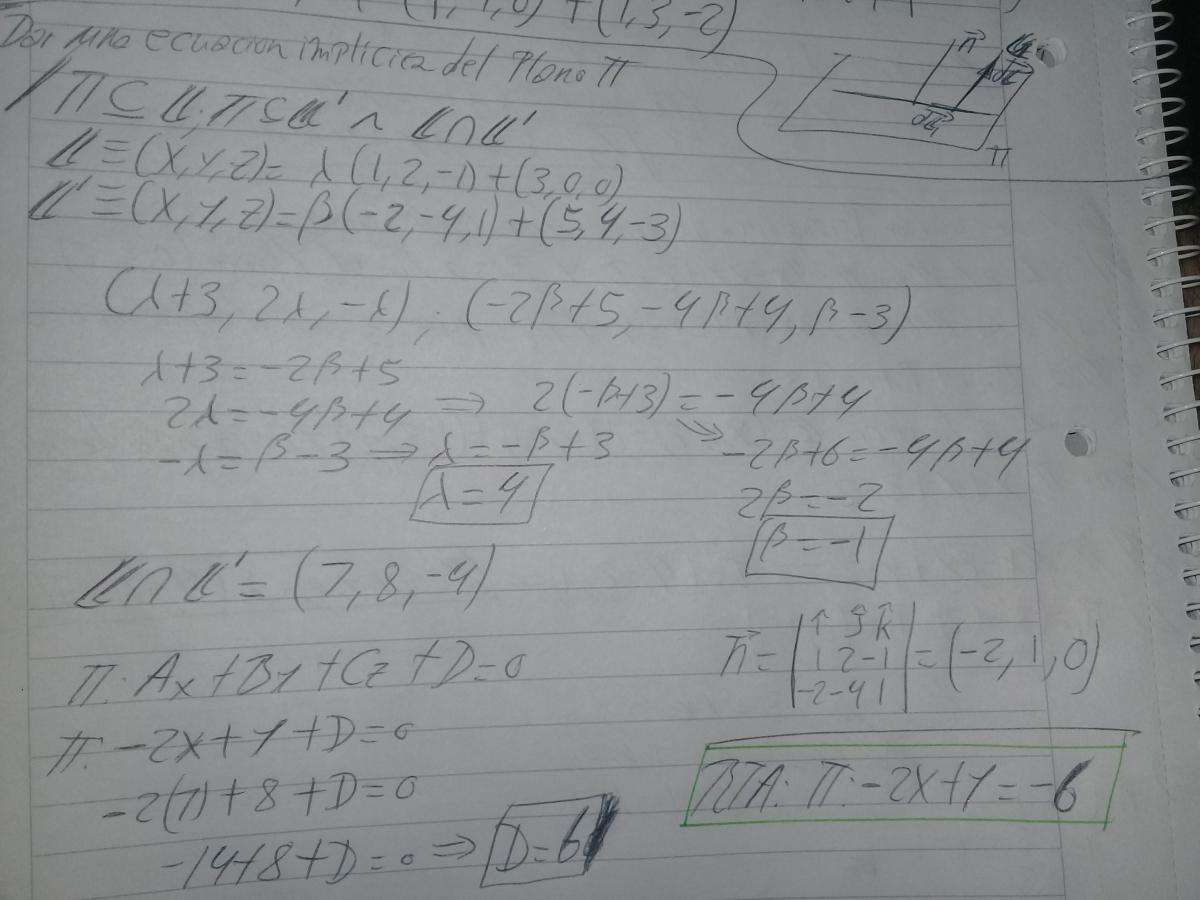 (1, 1, 0) + (1, 3, -2)
Dar una ecuacion implicita del Plano π
/ π ⊆ L; π ⊆ L' ∧ L ∩ L'
L ≡ (X, Y, Z) = λ (1, 2, -1) + (3, 0, 0)
L' ≡ (X, Y, Z) = β (-2, -4, 1) + (5, 4, -3)
n
π
(λ+3, 2λ, -λ) ; (-2β+5, -4β+4, β-3)
λ+3 = -2β+5
2λ = -4β+4 ⇒ 2(-β+3) = -4β+4
-λ = β-3 ⇒ λ = -β+3
-2β+6 = -4β+4
λ = 4
2β = -2
β = -1
L ∩ L' = (7, 8, -4)
n = | i j k | = (-2, 1, 0)
1 2 -1
-2 -4 1
π: Ax + By + Cz + D = 0
π: -2x + y + D = 0
-2(7) + 8 + D = 0
-14 + 8 + D = 0 ⇒ D = 6
RTA: π: -2x + y = -6